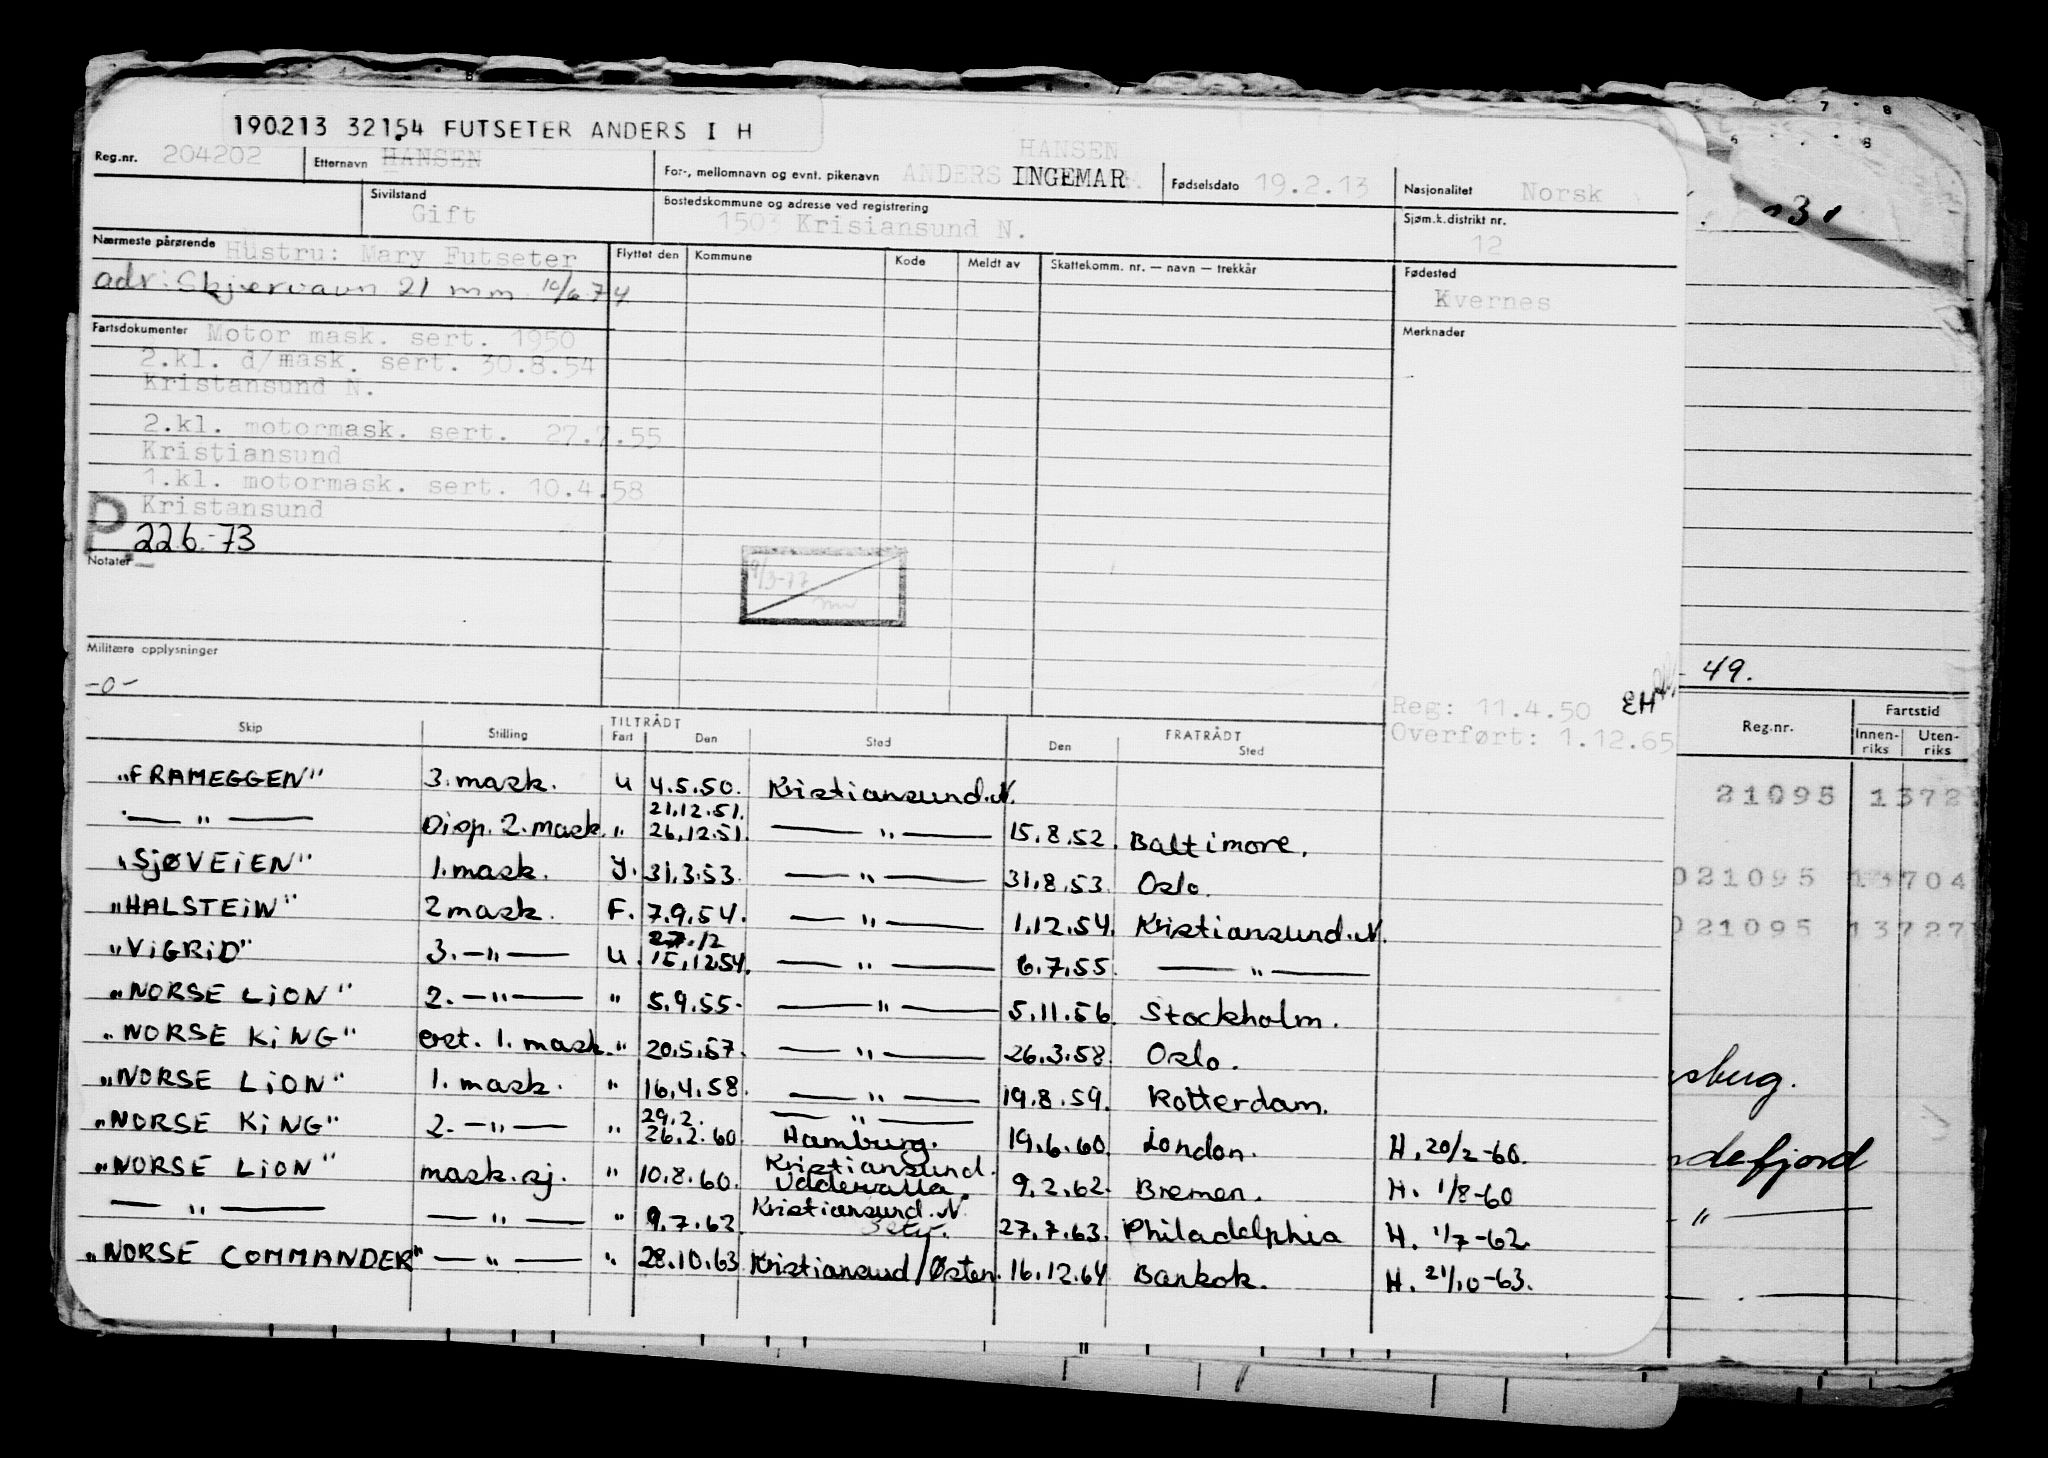 190213 32154 FUTSETER ANDERS I H
Reg.nr. 204202 Etternavn HANSEN For-, mellomnavn og evnt. pikenavn ANDERS INGEMAR HANSEN Fødselsdato 19.2.13 Nasjonalitet Norsk
Sivilstand Gift Bostedskommune og adresse ved registrering 1503 Krisiansund N. Sjøm.k.distrikt nr. 12
Nærmeste pårørende Hustru: Mary Futseter
adr: Skjærvavn 21 mm 10/6 74
Flyttet den Kommune Kode Meldt av Skattekomm. nr. — navn — trekkår
Fødested Kvernes
Merknader
Fartsdokumenter Motor mask. sert. 1950
2.kl. d/mask. sert. 30.8.54
Kristansund N.
2.kl. motormask. sert. 27.7.55
Kristiansund
1.kl. motormask. sert. 10.4.58
Kristansund
P. 22.6.-73
Notater —
9/3-77
Militære opplysninger
-0-
49.
Reg: 11.4.50 EH
Overført: 1.12.65
Skip Stilling TILTRÅDT Fart Den Sted FRATRÅDT Den Sted
Reg.nr. Fartstid Innen-riks Uten-riks
"FRAMEGGEN" 3. mask. u 4.5.50. Kristiansund.N.
21095 1372
—— " —— Disp. 2. mask. " 21.12.51. 26.12.51. —— " —— 15.8.52. Baltimore.
"SJØVEIEN" 1. mask. J. 31.3.53. —— " —— 31.8.53. Oslo.
021095 13704
"HALSTEIN" 2 mask. F. 7.9.54. —— " —— 1.12.54. Kristiansund.N.
021095 13727
"VIGRID" 3. —"—— u. 27.12 15.12.54. —— " —— 6.7.55. —— " ——
"NORSE LION" 2. —"—— " 5.9.55. —— " —— 5.11.56. Stockholm.
"NORSE KING" est. 1. mask. " 20.5.57. —— " —— 26.3.58. Oslo.
"NORSE LION" 1. mask. " 16.4.58. —— " —— 19.8.59. Rotterdam.
sberg.
"NORSE KING" 2. —"—— " 29.2. 26.2.60 —— " —— Hamburg. 19.6.60. London. H. 20/2-60.
defjord
"NORSE LION" mask.sj. " 10.8.60. Kristiansund. Uddevalla. 9.2.62. Bremen. H. 1/8-60
—— " —— —— " —— " 9.7.62. Kristiansund.N. 27.7.63. Philadelphia H. 1/7-62.
— " ——
"NORSE COMMANDER" —— " —— " 28.10.63 Kristiansund/Østen. 16.12.64 Bankok. H. 21/10-63.